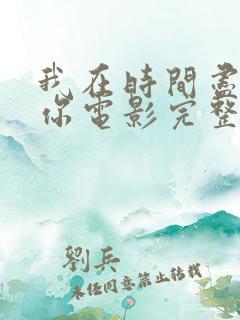 我在時間盡
你電影完整
劉兵
未经同意禁止转载